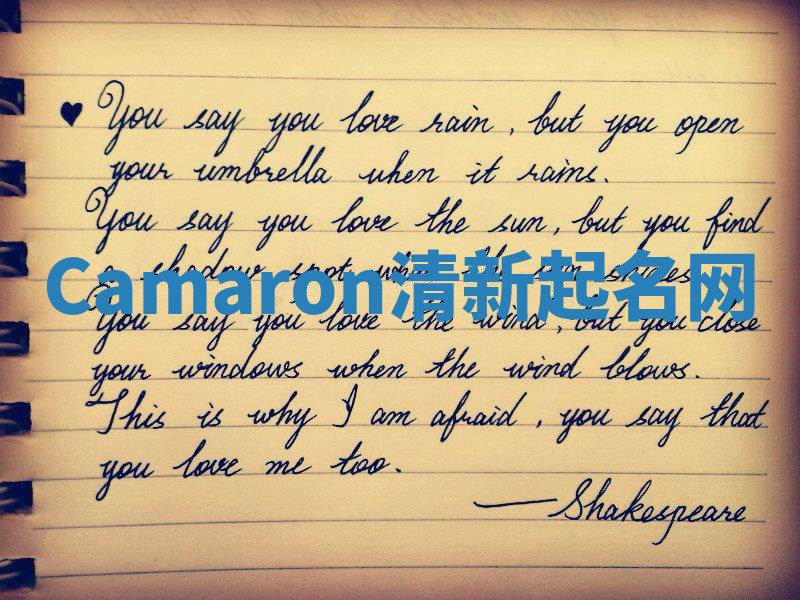 ♥ You say you love rain, but you open
your umbrella when it rains.
You say you love the sun, but you find
a shadow spot when the sun shines.
Camaron清新起名网
You say you love the wind, but you close
your windows when the wind blows.
This is why I am afraid, you say that
you love me too.
—Shakespeare